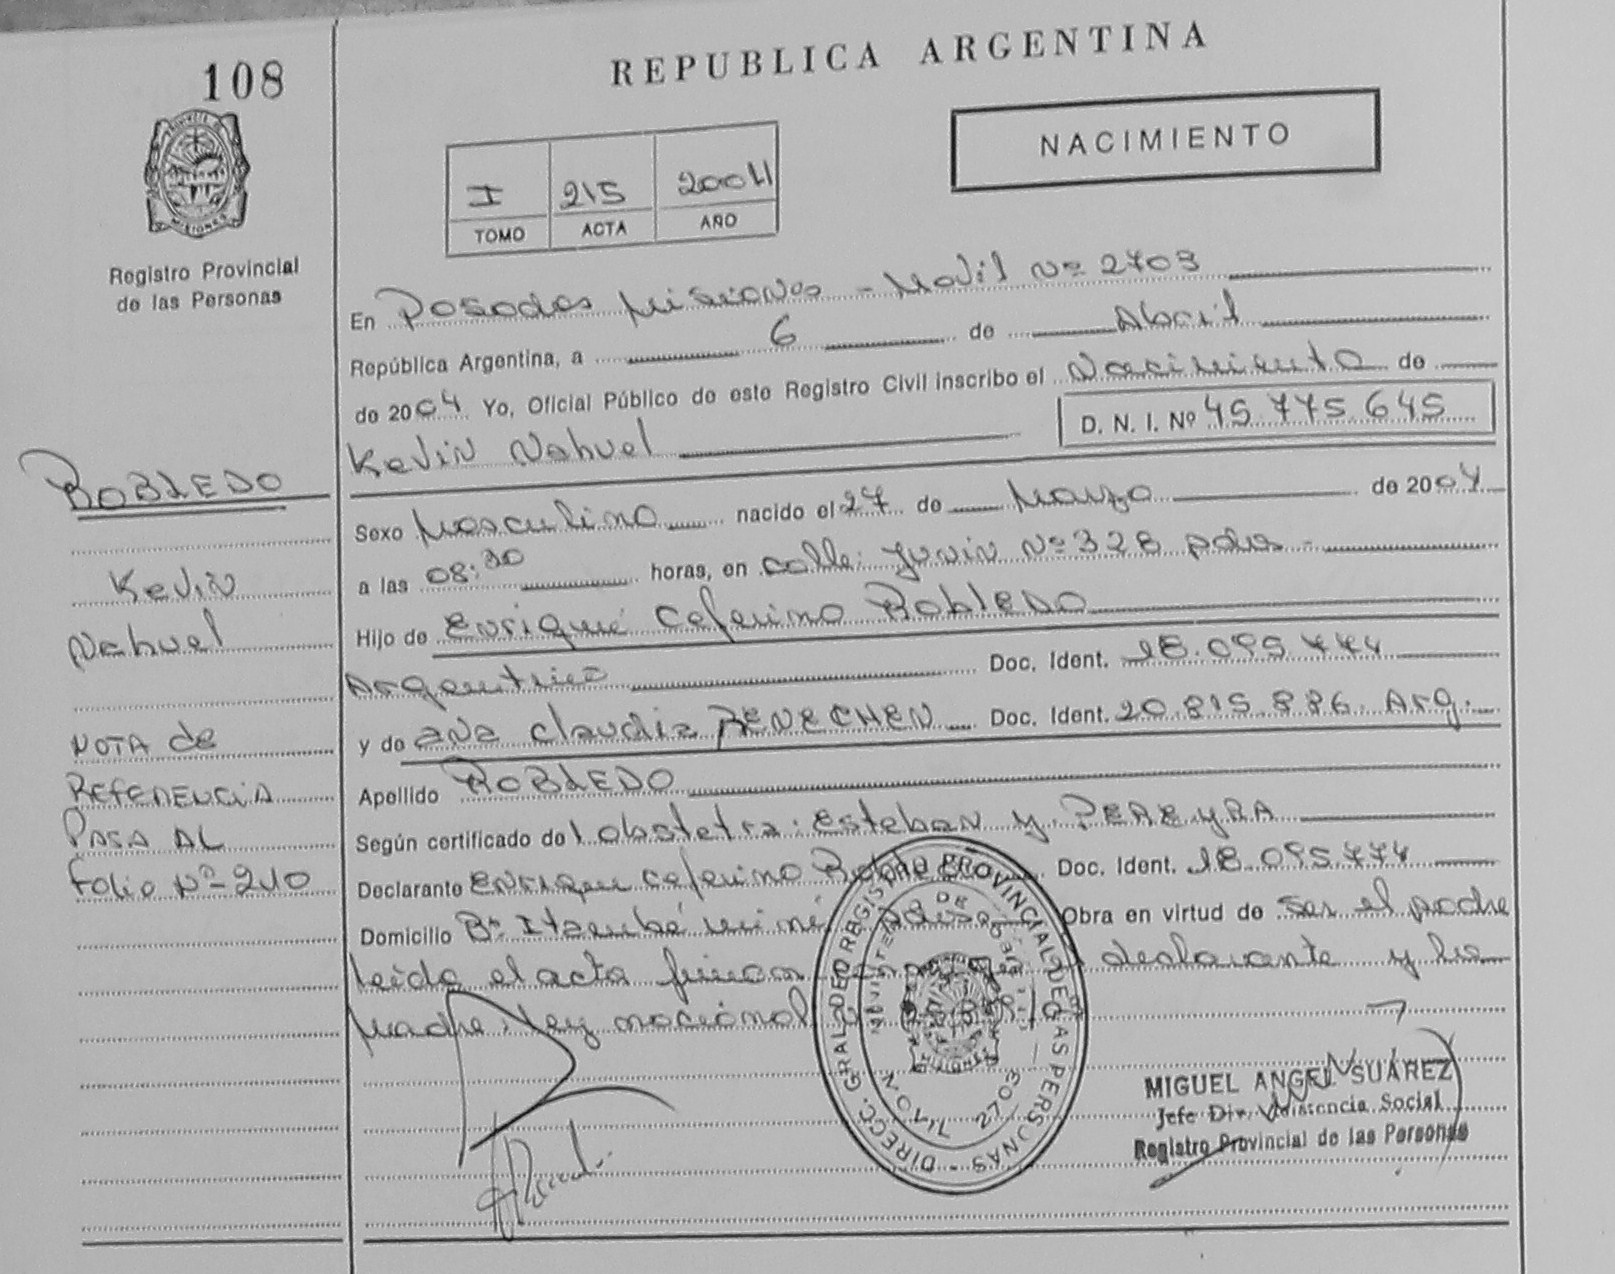 108
REPUBLICA ARGENTINA
NACIMIENTO
I 215 2004
TOMO ACTA AÑO
Registro Provincial
de las Personas
En Posadas Misiones - Movil Nº 2703
República Argentina, a 6 de Abril
de 2004 Yo, Oficial Público de este Registro Civil inscribo el Nacimiento de
Kevin Nahuel
D. N. I. Nº 45.775.645
ROBLEDO
Kevin
Nahuel
NOTA de
REFERENCIA
PASA AL
Folio Nº 210
Sexo Masculino nacido el 27 de Marzo de 2004
a las 08:30 horas, en calle: Junin Nº 328 pdas -
Hijo de Enrique Ceferino Robledo
Argentino Doc. Ident. 18.095.774
y de Ana Claudia BENECHEN Doc. Ident. 20.815.886. Arg.
Apellido ROBLEDO
Según certificado de obstetra: Esteban y PEREYRA
Declarante Enrique Ceferino Robledo Doc. Ident. 18.095.774
Domicilio Bº Itaembé miní pdas Obra en virtud de ser el padre
leida el acta firman declarante y la
madre. Ley nacional
DIRECC. GRAL. DEL REGISTRO PROVINCIAL DE LAS PERSONAS
MOVIL 2703
MIGUEL ANGEL SUÁREZ
Jefe Div. Asistencia Social
Registro Provincial de las Personas